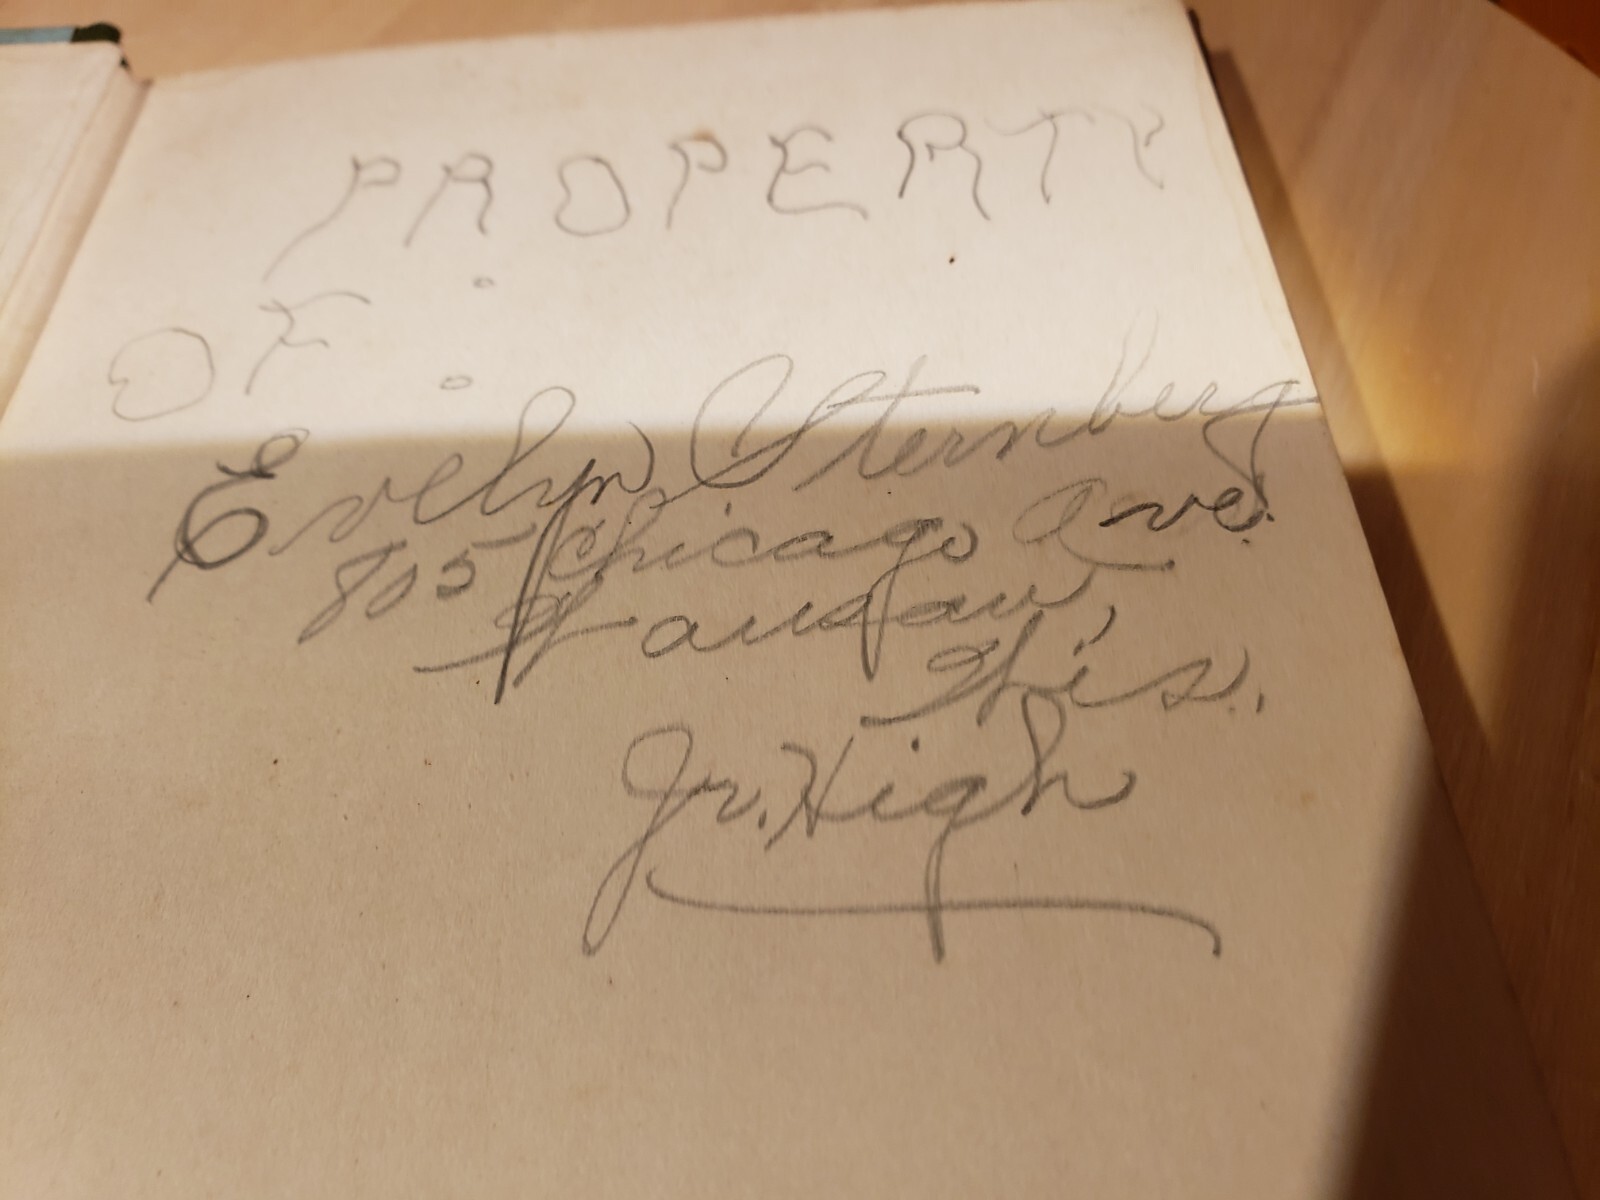 PROPERTY
OF :
Evelyn Sternberg
805 Chicago Ave.
Wausau,
Wis.
Jr. High